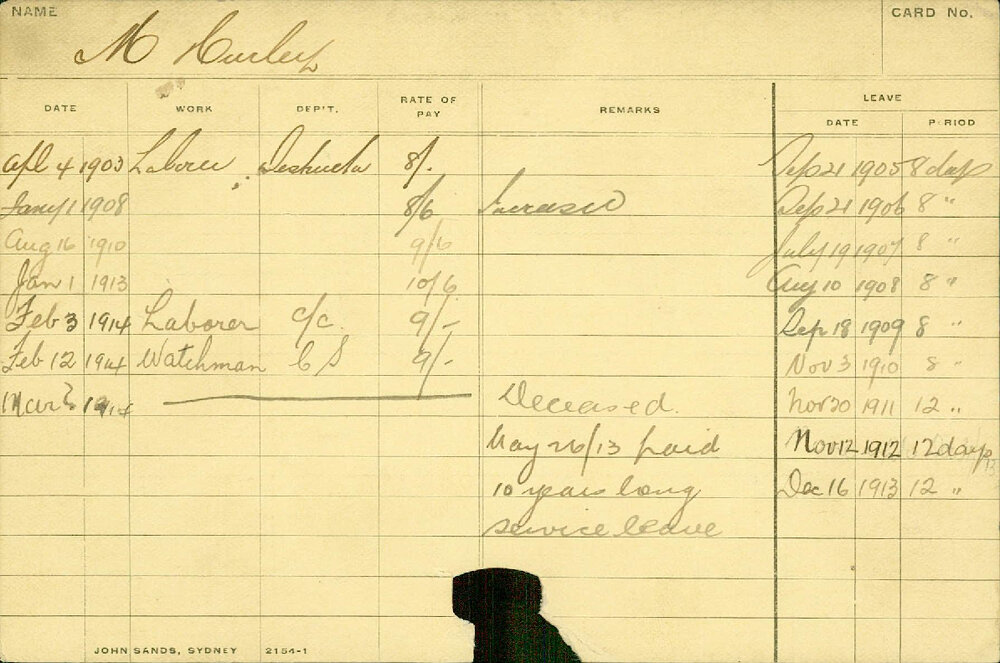 NAME
CARD No.
M Hurley
DATE WORK DEP'T. RATE OF PAY REMARKS LEAVE
DATE PERIOD
Apl 4 1903 Laborer 8/. Sep 21 1905 8 days
Jany 1 1908 8/6 Increased Sep 21 1906 8 "
Aug 16 1910 9/6 July 19 1907 8 "
Jan 1 1913 10/6 Aug 10 1908 8 "
Feb 3 1914 Laborer C/C. 9/- Sep 18 1909 8 "
Feb 12 1914 Watchman C S 9/- Nov 3 1910 8 "
Mar 1914 Deceased. Nov 20 1911 12 "
May 26/13 paid Nov 12 1912 12 days
10 years long Dec 16 1913 12 "
service leave
JOHN SANDS, SYDNEY 2154-1